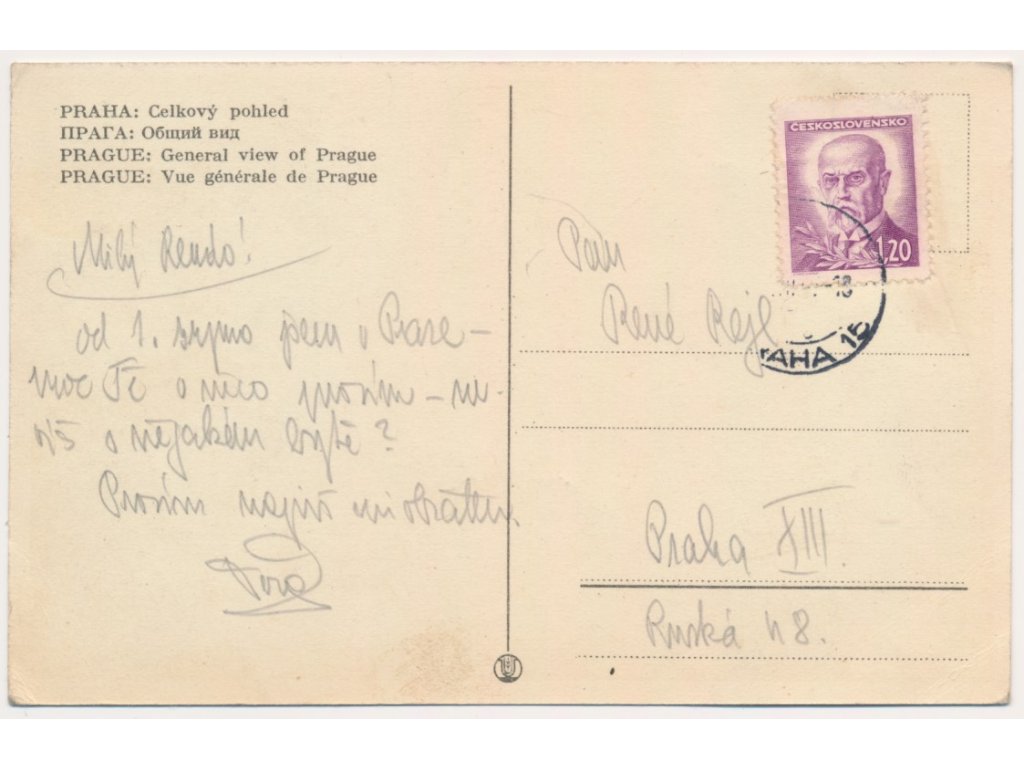 PRAHA: Celkový pohled
ПРАГА: Общий вид
PRAGUE: General view of Prague
PRAGUE: Vue générale de Prague
Milý Rendo!
od 1. srpna jsem v Praze –
moc Tě o něco prosím – ne-
víš o nějakém bytě?
Prosím napiš mi obratem.
ČESKOSLOVENSKO
1,20
PRAHA 15
Pan
René Rejl
Praha XIII.
Ruská 48.